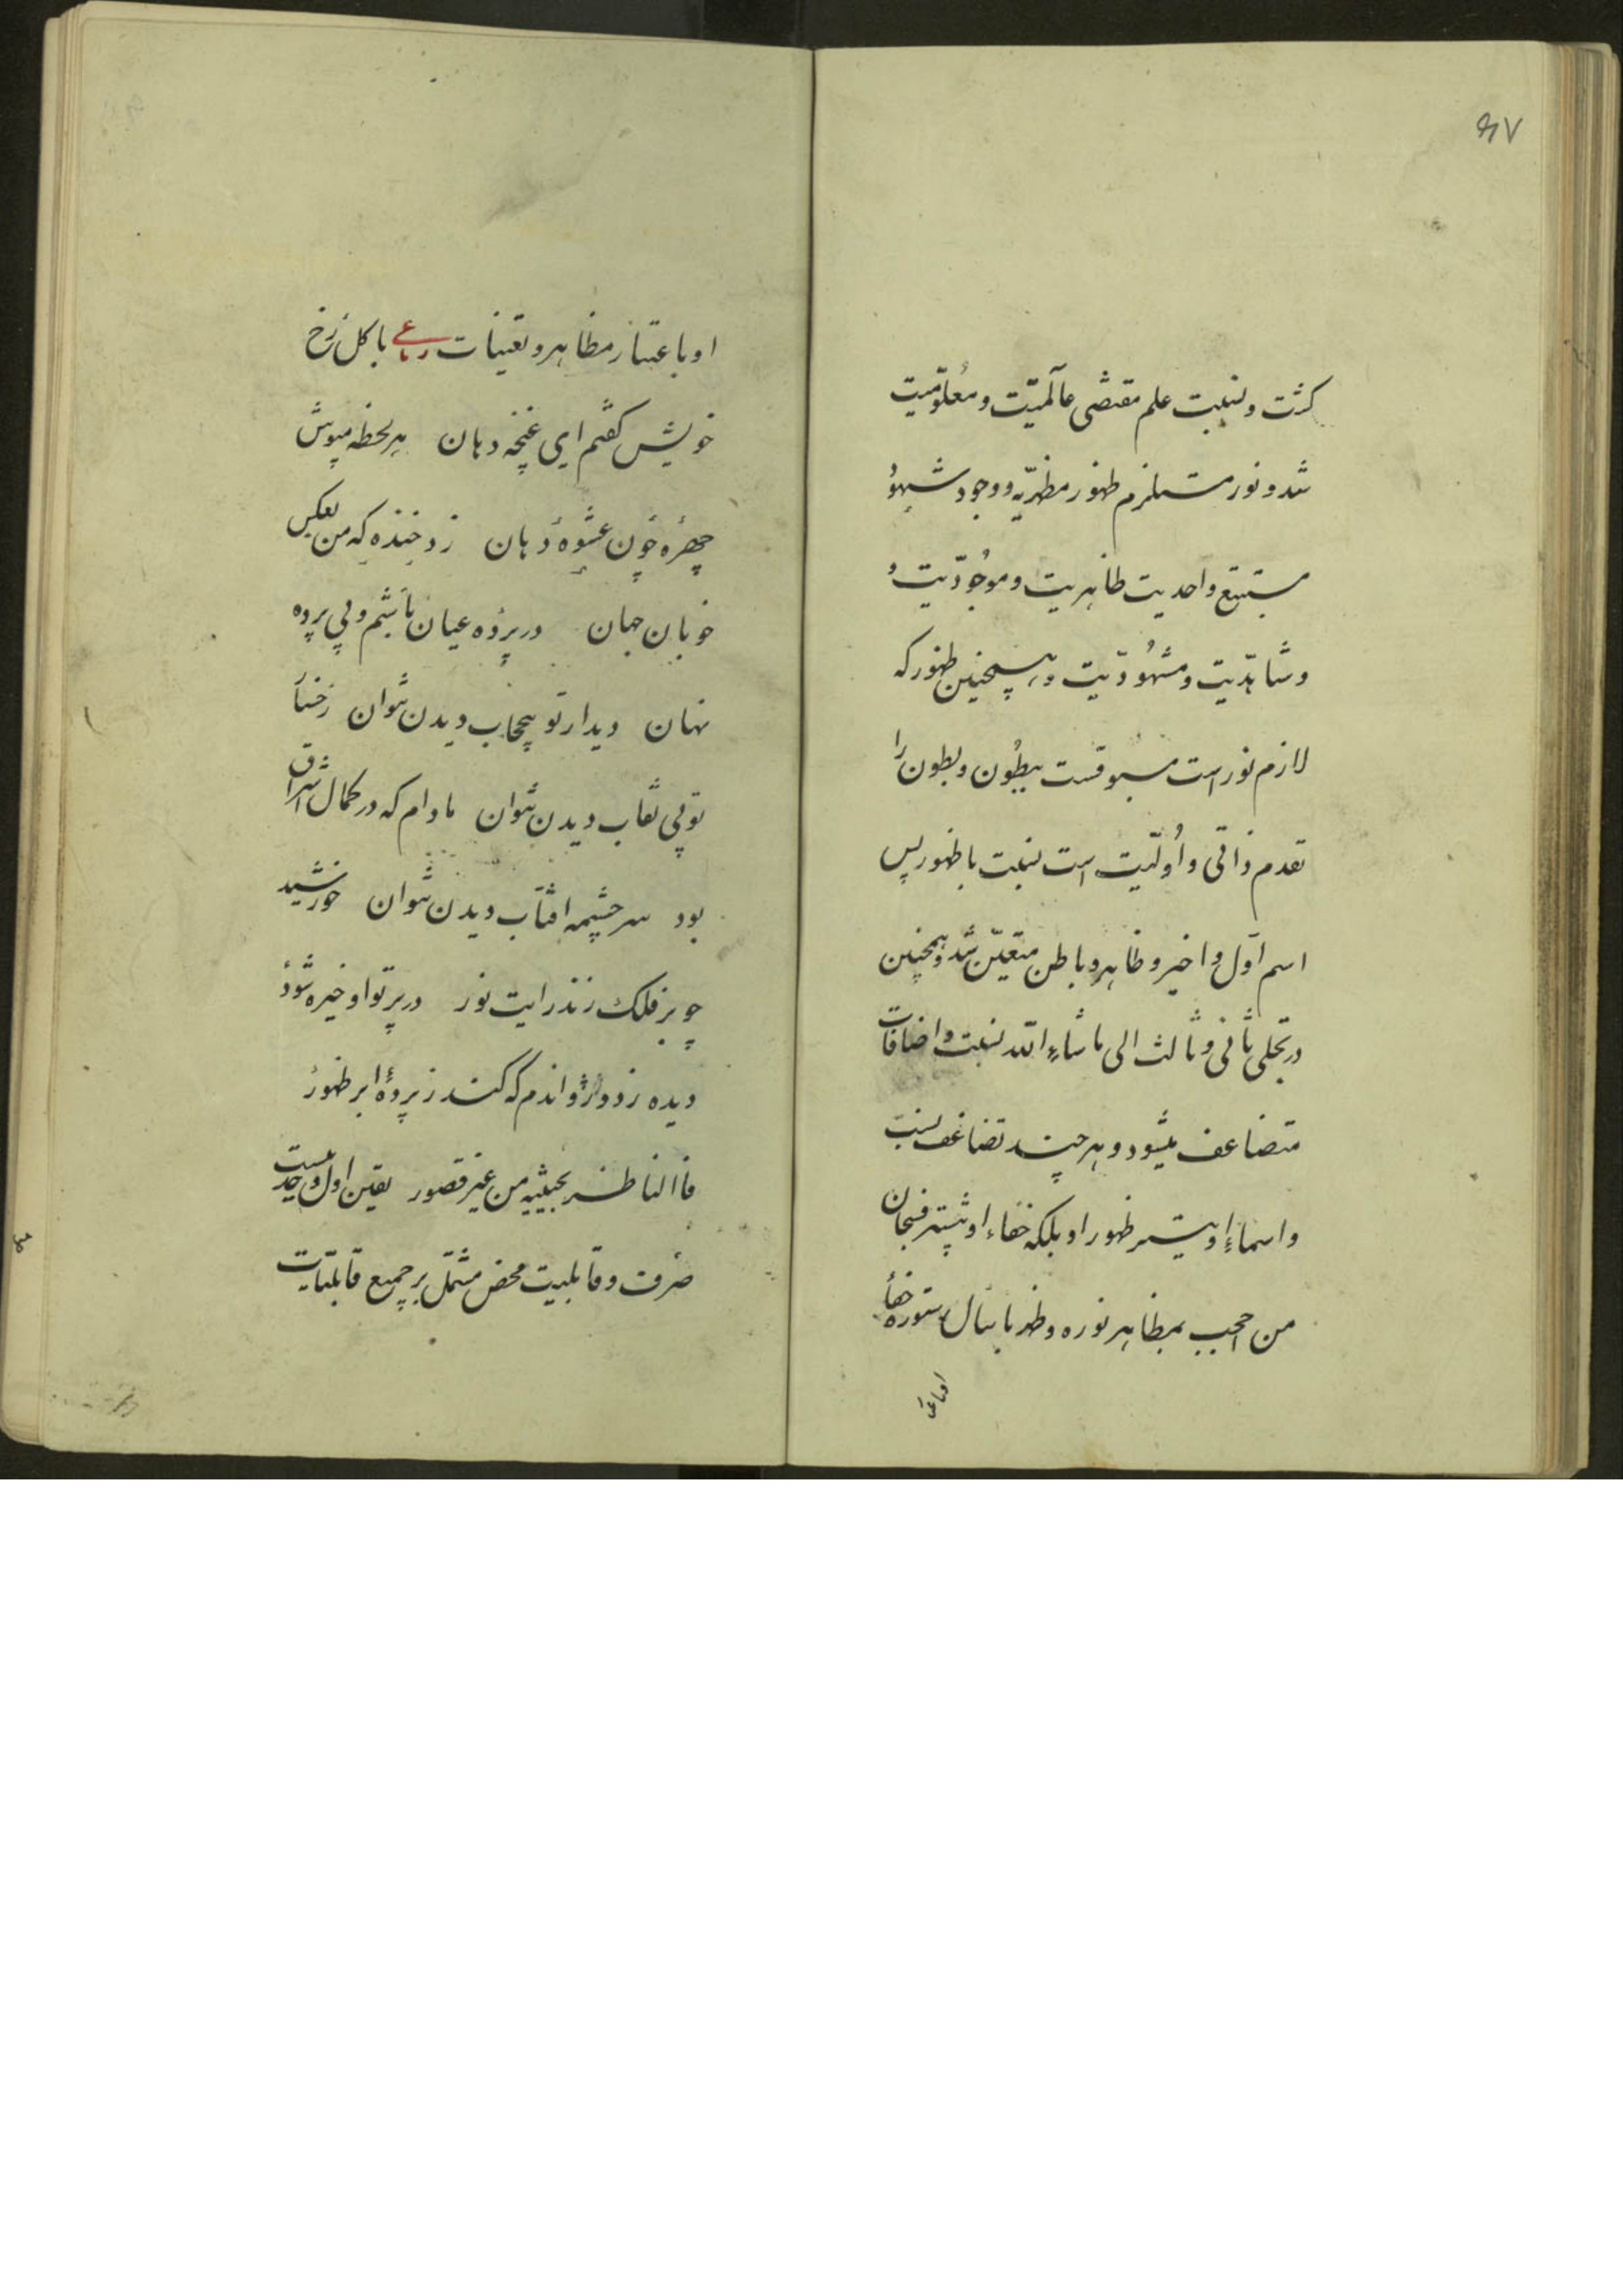 ٤٧
کثرت و نسبت علم مقتضی عالمیّت و معلومیّت
شد و نور مستلزم ظهور مظهریه و وجود شهود
مستتبع واحدیت ظاهریت و موجودیّت و
و شاهدیّت و مشهودیّت و همچنین ظهور که
لازم نور است مسبوقست ببطون و بطون را
تقدم ذاتی و اُولیّت است نسبت با ظهور پس
اسم اوّل و اخیر و ظاهر و باطن متعیّن شد و همچنین
در تجلی ثانی و ثالث الی ماشاء الله نسبت و اضافات
متضاعف میشود و هر چند تضاعف نسب
و اسماء او بیشتر ظهور او بلکه خفاء او بیشتر فسبحان
من احجب بمظاهر نوره و ظهر باسبال ستوره خفأ
او باعتبار مظاهر و تعینات رباعی با گل رخ
خویش گفتم ای غنچه دهان هر لحظه مپوش
چهره چون عشوه دهان زد خنده که من بعکس
خوبان جهان در پرده عیان باشم و بی پرده
نهان دیدار تو بیحجاب دیدن نتوان رخسا
تو بی نقاب دیدن نتوان مادام که در کمال اشراق
بود سر چشمه افتاب دیدن نتوان خورشید
چو بر فلک زند رایت نور در پرتو او خیره شود
دیده ز دور و اندم که کند ز پردهٔ ابر ظهور
فاالناظر یجتلیه من غیر قصور تعین اول وحدتیست
صرف و قابلیت محض مشتمل بر جمیع قابلیّات